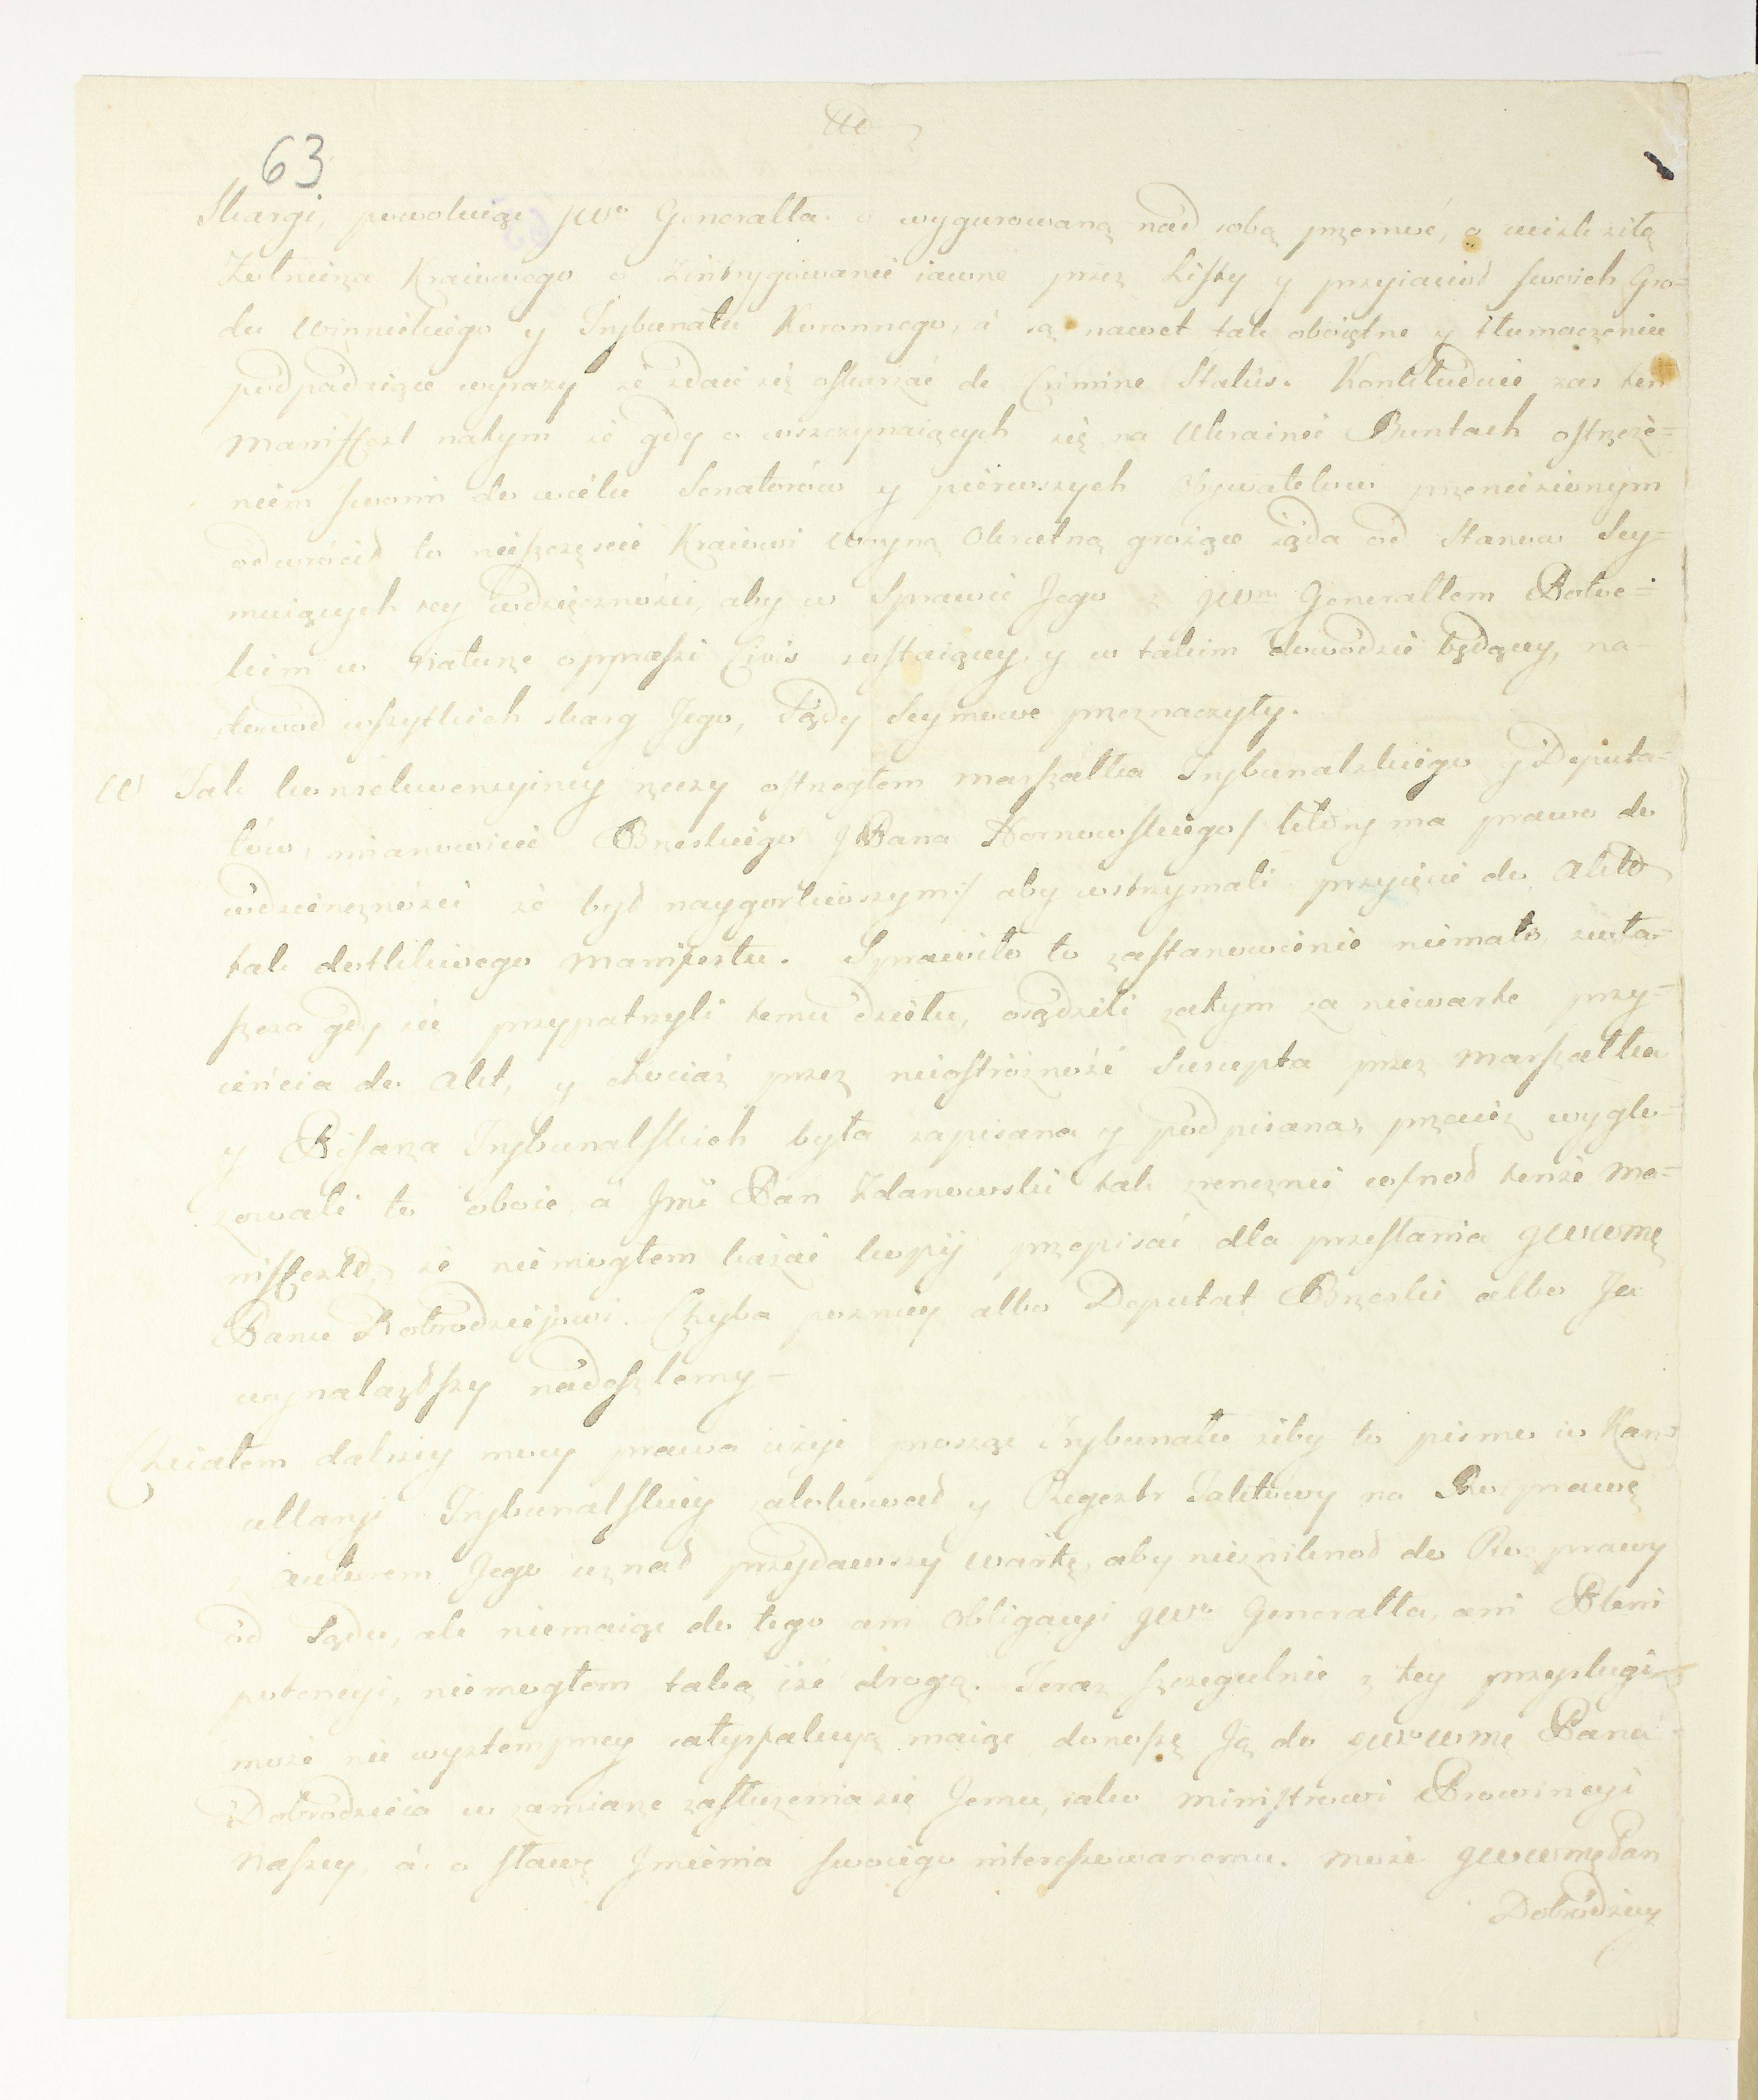 63
Skargi, powołuiąc JWo Generałła o wygurowaną nad sobą przemoc, o ucisk siłą
Żołnierza Kraiowego o Zintrygowanie iawne przez Listy y przyiaciół swoich Gro=
du Winnickiego y Trybunału Koronnego, á są nawet tak oboiętne y tłumaczeniu
podpadaiące wyrazy że zdaie się oskarżać de Crimine Status. Konkluduie zas ten
Manifest natym że gdy o wszczynaiących się na Ukrainie Buntach ostrzeże=
niem swoim do wielu Senatorów y pierwszych Obywatelow przeniesionym
odwrócił to nieszczęscie Kraiowi Woyną Okrutną grożące żąda od Stanow Sey=
muiących tey wdzięcznośći, aby w Sprawie Jego z JWm Generałłem Potoc=
kim w naturze oppressi Civis zostaiący, y w takim dowodzie będący, na
dowod wszytkich skarg Jego, Sądy Seymowe przeznaczyły.
W Tak konsekwensyiney rzeczy ostrzegłem Marszałka Trybunalskiego y Deputa=
tów, mianowicie Brzeskiego JPana Hornowskiego / ktory ma prawo do
wdzięcznośći że był naygorliwszym / aby wstrzymali przyięcie do Akt
tak dotkliwego Manifestu. Sprawiło to zastanowienie niemałe, zwła=
szcza gdy się przypatrzyli temu dziełu, osądzili zatym za niewarte przy=
ięńcia do Akt, y chociaż przez nieostróżność Suscepta przez Marszałka
y Pisarza Trybunalskich była zapisana y podpisana, przecię wyglo=
zowali to oboie, á Jmć Pan Zdanowski tak zręcznie cofnoł tenże Ma=
nifest, że niemogłem kazać kopij przepisać dla przesłania JWWMę
Panu Dobrodziejowi. Chyba pozniey albo Deputat Brzeski albo Ja
wynalazłszy nadeszlemy –
Chciałem dalszey mocy prawa użyć prosząc Trybunału żeby to pismo w Kan=
cllaryi Trybunalskiey zalokował y Regestr Taktowy na Rozprawę
z Autorem Jego uznał przydawszy Wartę, aby niezniknoł do Rozprawy
od Sądu, ale niemaiąc do tego ani Obligacyi JWo Generałła, ani Pleni
potencyi, niemogłem taką iść drogą. Teraz szczegulnie z tey przysługi
może nie występney satysfakcyą maiąc donoszę Ją do JWWMę Pana
Dobrodzieia w zamiarze zasłużenia się Jemu, iako Ministrowi Prowincyi
Naszey, á o sławę Jmienia swoiego interessowanemu. Może JWWMęPan
Dobrodziey